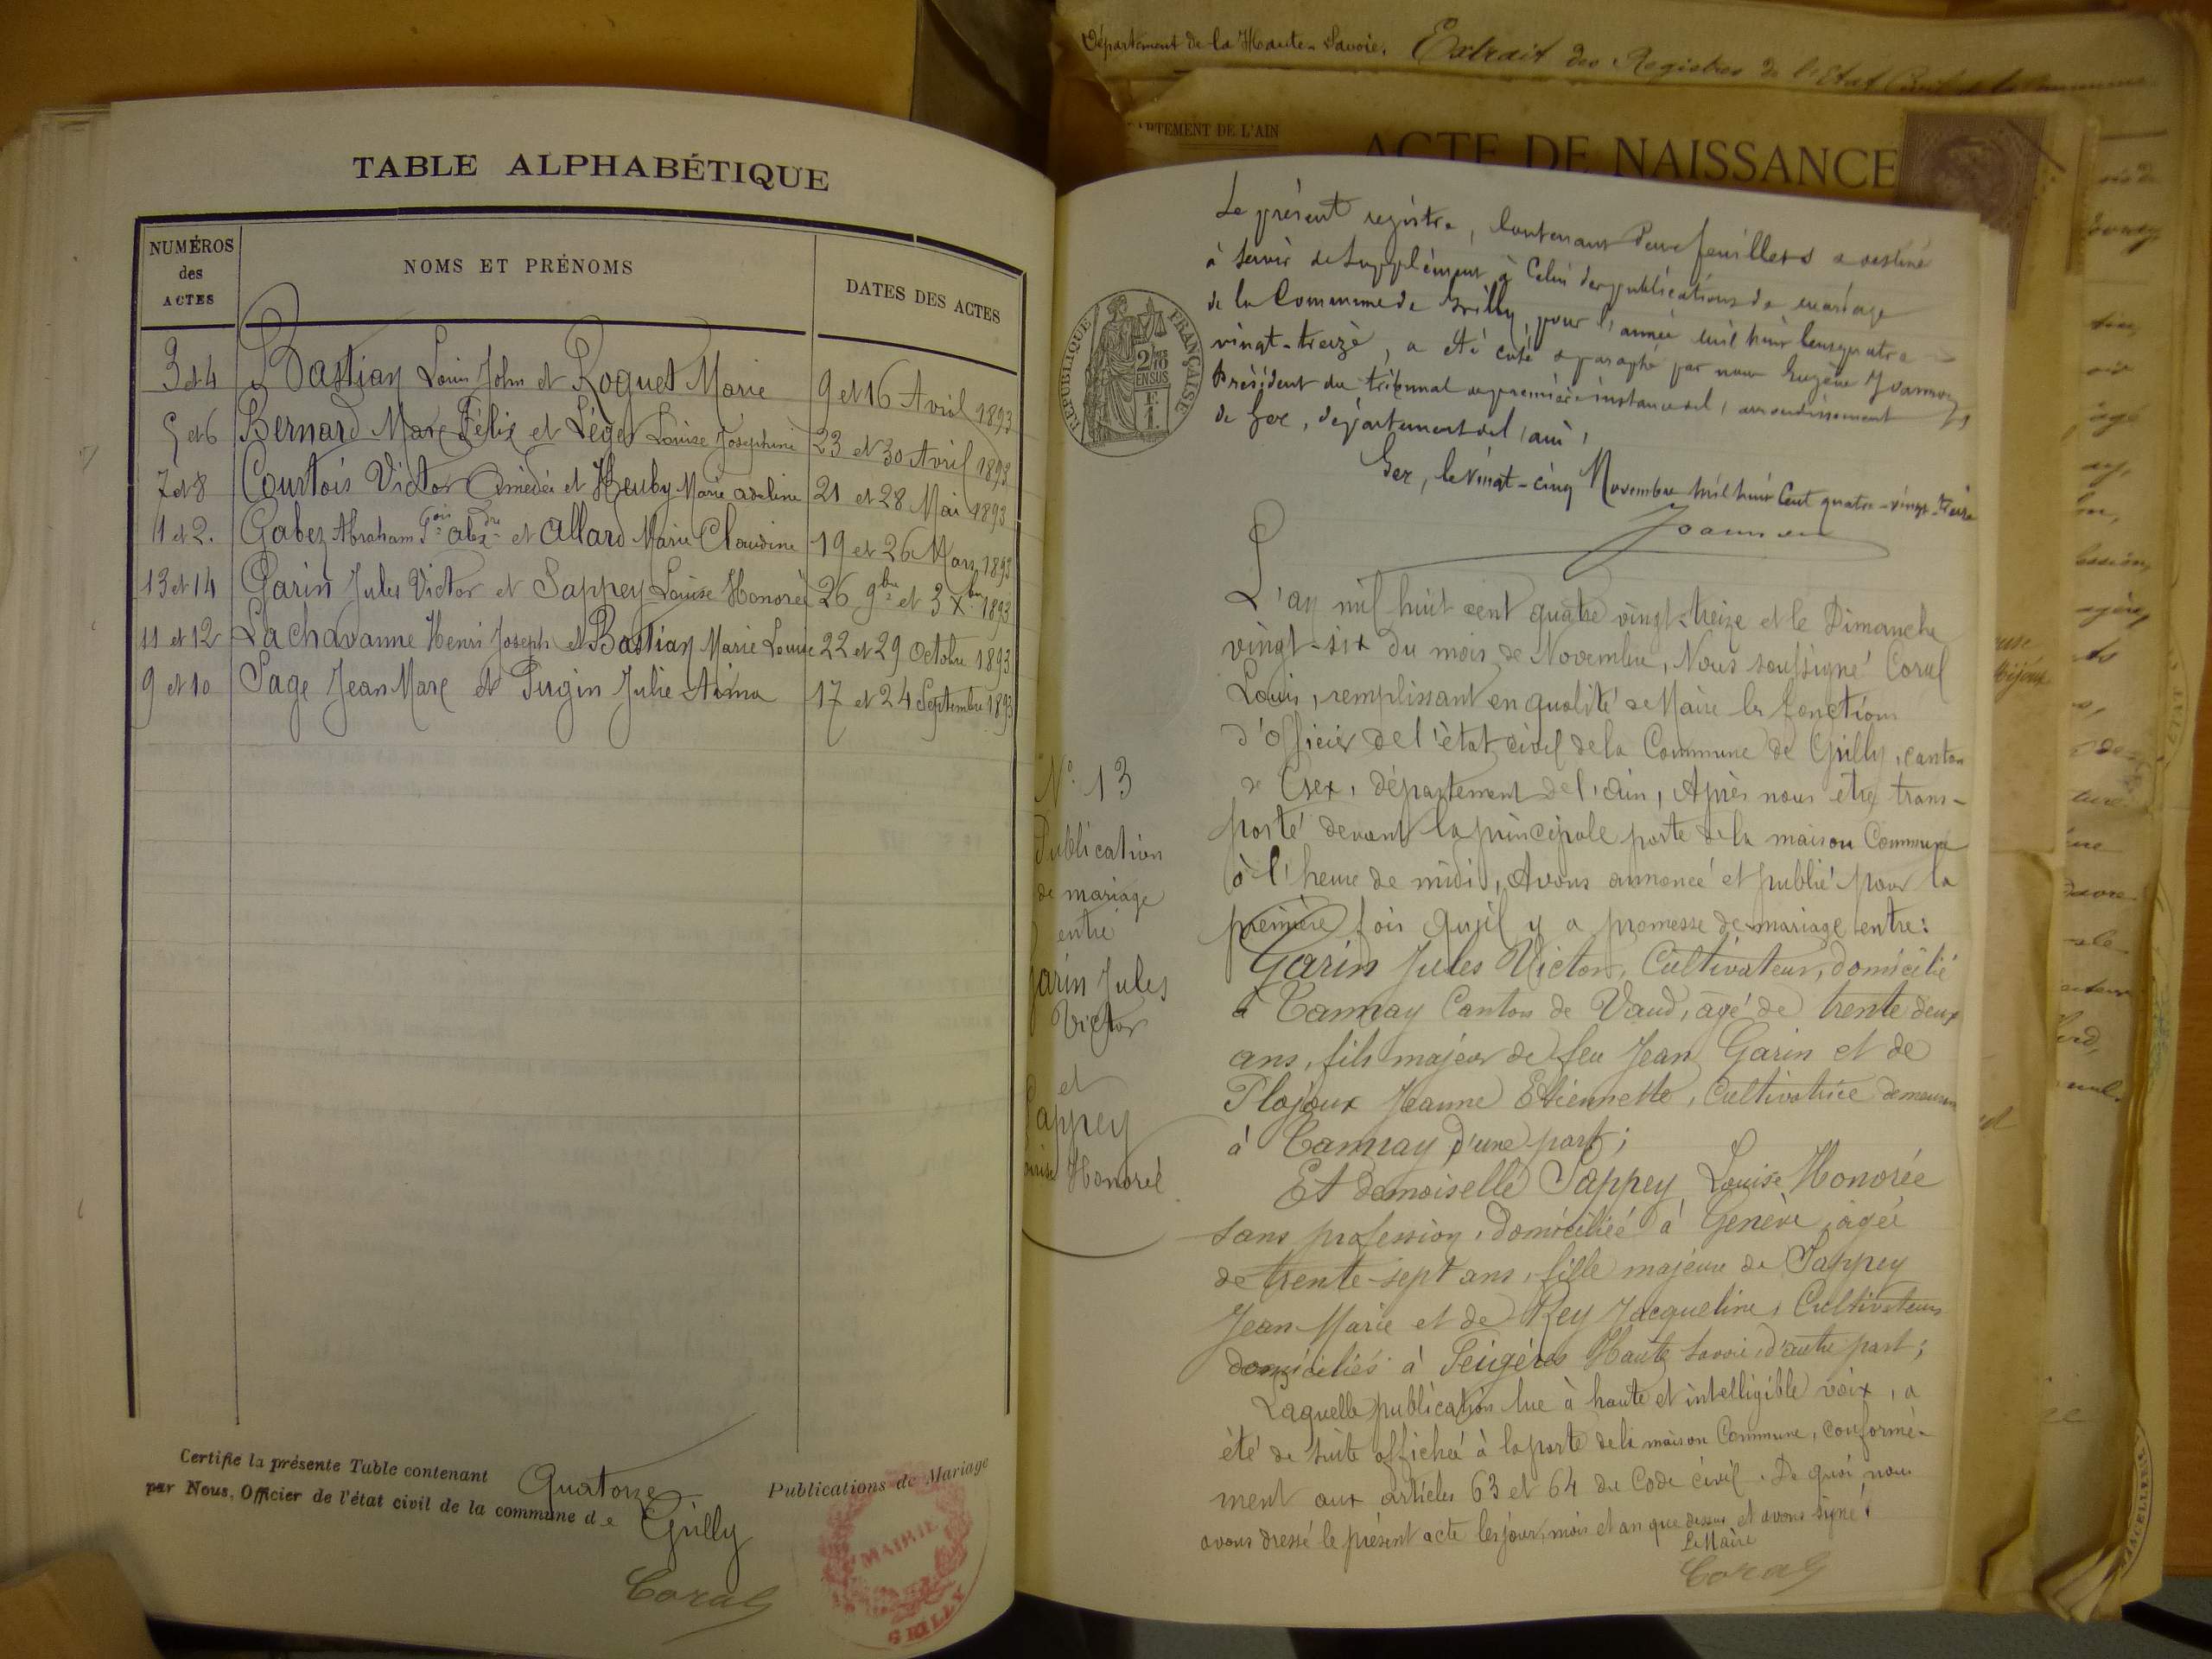 TABLE ALPHABÉTIQUE
NUMÉROS des ACTES
NOMS ET PRÉNOMS
DATES DES ACTES
3 et 4 Bastian Louis John et Roguet Marie 9 et 16 Avril 1893
5 et 6 Bernard Marc Félix et Léger Louise Joséphine 23 et 30 Avril 1893
7 et 8 Courtois Victor Amédée et Heuby Marie adeline 21 et 28 Mai 1893
1 et 2. Gabez Abraham Fois alexdre et Allard Marie Claudine 19 et 26 Mars 1893
13 et 14 Garin Jules Victor et Sappey Louise Honorée 26 9bre et 3 Xbre 1893
11 et 12 Lachavanne Henri Joseph et Bastian Marie Louise 22 et 29 Octobre 1893
9 et 10 Sage Jean Marc et Pugin Julie Aima 17 et 24 Septembre 1893
Certifie la présente Table contenant Quatorze Publications de Mariage
par Nous, Officier de l'état civil de la commune de Grilly
Coral
MAIRIE
GRILLY
Département de la Haute-Savoie. Extrait des Registres de l'Etat Civil de la Commune
DÉPARTEMENT DE L'AIN
ACTE DE NAISSANCE
RÉPUBLIQUE FRANÇAISE
2/10
EN SUS
F.
1.
Le présent registre, contenant deux feuillets & destiné
à servir de supplément à celui des publications de mariage
de la Commune de Grilly, pour l'année mil huit cent quatre
vingt-treize, a été coté & paraphé par nous Eugène
Président du tribunal de première instance de l'arrondissement
de Gex, département de l'ain,
Gex, le vingt-cinq Novembre mil huit Cent quatre-vingt-treize
N° 13
Publication
de mariage
entre
Garin Jules
Victor
et
Sappey
Louise Honorée
L'an mil huit cent quatre vingt-treize et le Dimanche
vingt-six du mois de Novembre, Nous soussigné Coral
Louis, remplissant en qualité de Maire les fonctions
d'Officier de l'état civil de la Commune de Grilly, canton
de Gex, département de l'Ain, Après nous être trans-
porté devant la principale porte de la maison Commune
à l'heure de midi, Avons annoncé et publié pour la
première fois qu'il y a promesse de mariage entre:
Garin Jules Victor, Cultivateur, domicilié
à Tannay Canton de Vaud, âgé de trente deux
ans, fils majeur de feu Jean Garin et de
Plojoux Jeanne Etiennette, Cultivatrice demeurant
à Tannay d'une part;
Et demoiselle Sappey Louise Honorée
sans profession, domiciliée à Genève, âgée
de trente-sept ans, fille majeure de Sappey
Jean-Marie et de Rey Jacqueline, Cultivateurs
domiciliés à Feigères Haute Savoie, d'autre part;
Laquelle publication lue à haute et intelligible voix, a
été de suite affichée à la porte de la maison Commune, conformé-
ment aux articles 63 et 64 du Code civil. De quoi nous
avons dressé le présent acte les jour, mois et an que dessus et avons signé.
Le Maire
Coral